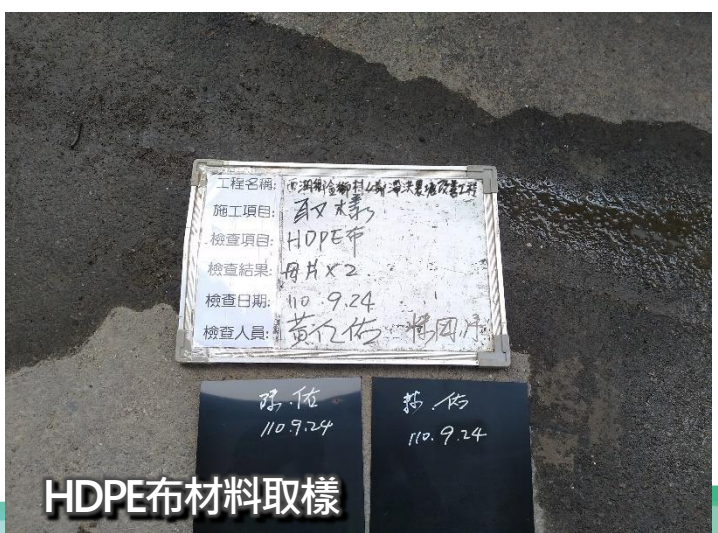 工程名稱:
施工項目: 取樣
檢查項目: HDPE布
檢查結果: 母片x2
檢查日期: 110.9.24
檢查人員: 黃仁佑
佑
110.9.24
佑
110.9.24
HDPE布材料取樣